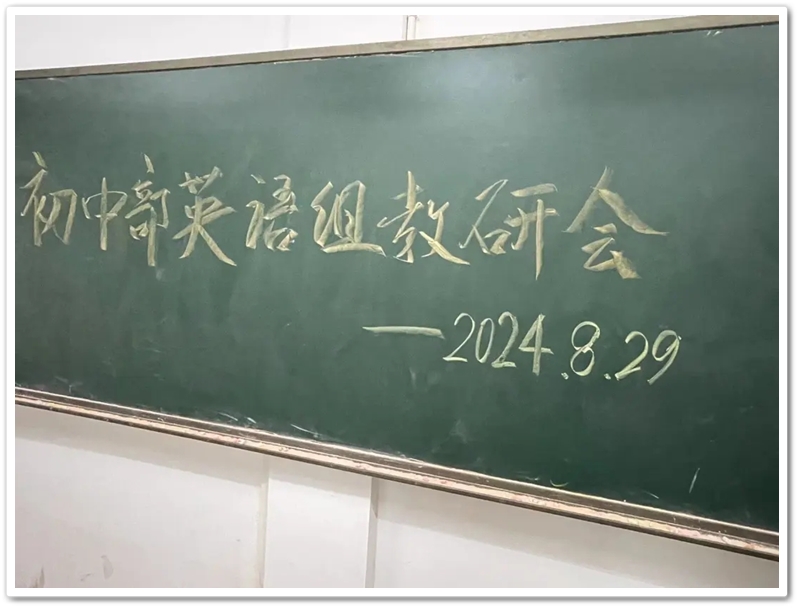 初中部英语组教研会
—2024.8.29